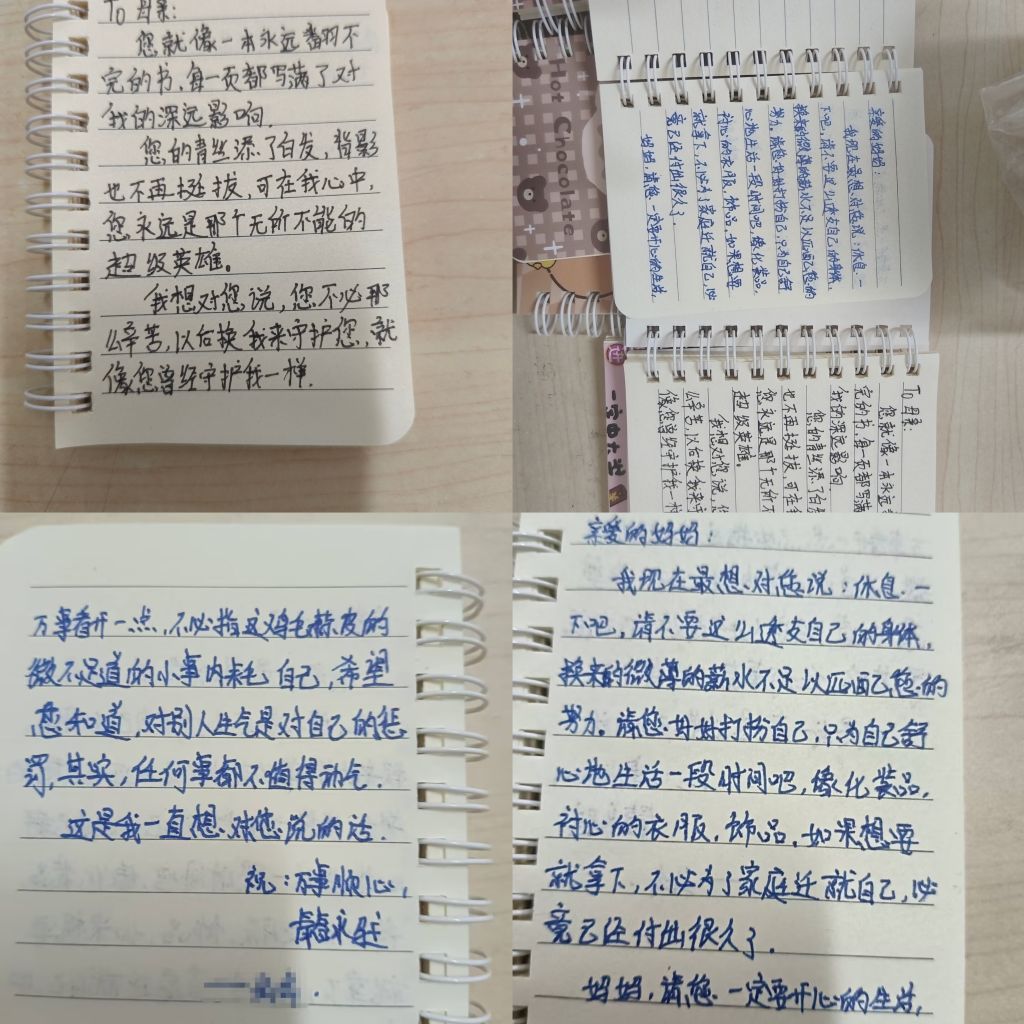 To 母亲:
您就像一本永远翻不
完的书,每一页都写满了对
我的深远影响.
您的青丝添了白发,背影
也不再挺拔,可在我心中,
您永远是那个无所不能的
超级英雄。
我想对您说,您不必那
么辛苦,以后换我来守护您,就
像您曾经守护我一样.
Hot Chocolate
亲爱的妈妈:
我现在最想对您说:休息一
下吧,请不要这么透支自己的身体,
换来的微薄的薪水不足以匹配您的
努力。请您好好打扮自己,只为自己舒
心地生活一段时间吧,像化妆品,
衬心的衣服,饰品,如果想要
就拿下,不必为了家庭迁就自己,必
竟已经付出很久了.
妈妈,请您一定要开心的生活,
To 母亲:
您就像一本永远翻不
完的书,每一页都写满了对
我的深远影响
您的青丝添了白发
也不再挺拔,可在
您永远是那个无所不
超级英雄。
我想对您说,您
么辛苦,以后换我来守
像您曾经守护我一样
万事看开一点,不必指这鸡毛蒜皮的
微不足道的小事内耗自己,希望
您知道,对别人生气是对自己的惩
罚,其实,任何事都不值得动气.
这是我一直想对您说的话.
祝:万事顺心,
永驻
亲爱的妈妈:
我现在最想对您说:休息一
下吧,请不要这么透支自己的身体,
换来的微薄的薪水不足以匹配您的
努力。请您好好打扮自己,只为自己舒
心地生活一段时间吧,像化妆品,
衬心的衣服,饰品,如果想要
就拿下,不必为了家庭迁就自己,必
竟已经付出很久了.
妈妈,请您一定要开心的生活,